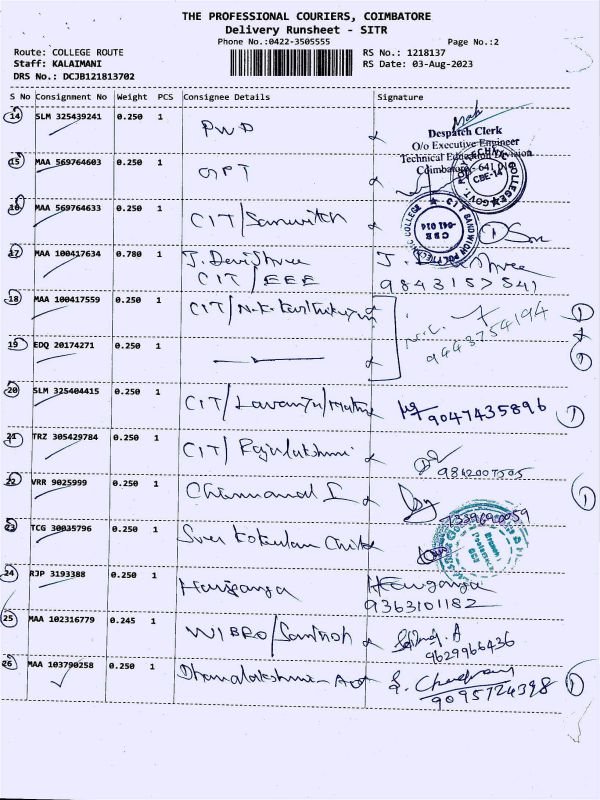 THE PROFESSIONAL COURIERS, COIMBATORE
Delivery Runsheet - SITR
Phone No.:0422-3505555
Page No.:2
Route: COLLEGE ROUTE
RS No.: 1218137
Staff: KALAIMANI
RS Date: 03-Aug-2023
DRS No.: DCJB121813702
S No Consignment No Weight PCS Consignee Details Signature
14 SLM 325439241 0.250 1 PWD
Despatch Clerk
O/o Executive Engineer
Technical Education Division
Coimbatore - 641 014
15 MAA 569764603 0.250 1 GPT
16 MAA 569764633 0.250 1 CIT/
17 MAA 100417634 0.780 1 J. Devishree J. Devishree
CIT/EEE 9843157541
18 MAA 100417559 0.250 1 CIT/N.K.
9443754194
19 EDQ 20174271 0.250 1
20 SLM 325404415 0.250 1 CIT/Lavanya/ 9047435896
21 TRZ 305429784 0.250 1 CIT/Rajalakshmi
9842007505
22 VRR 9025999 0.250 1
7339690059
23 TCG 30035796 0.250 1
24 RJP 3193388 0.250 1
9363101182
25 MAA 102316779 0.245 1 WIBRO/Santhosh
9629966436
26 MAA 103790258 0.250 1 Dhanalakshmi
9095724398